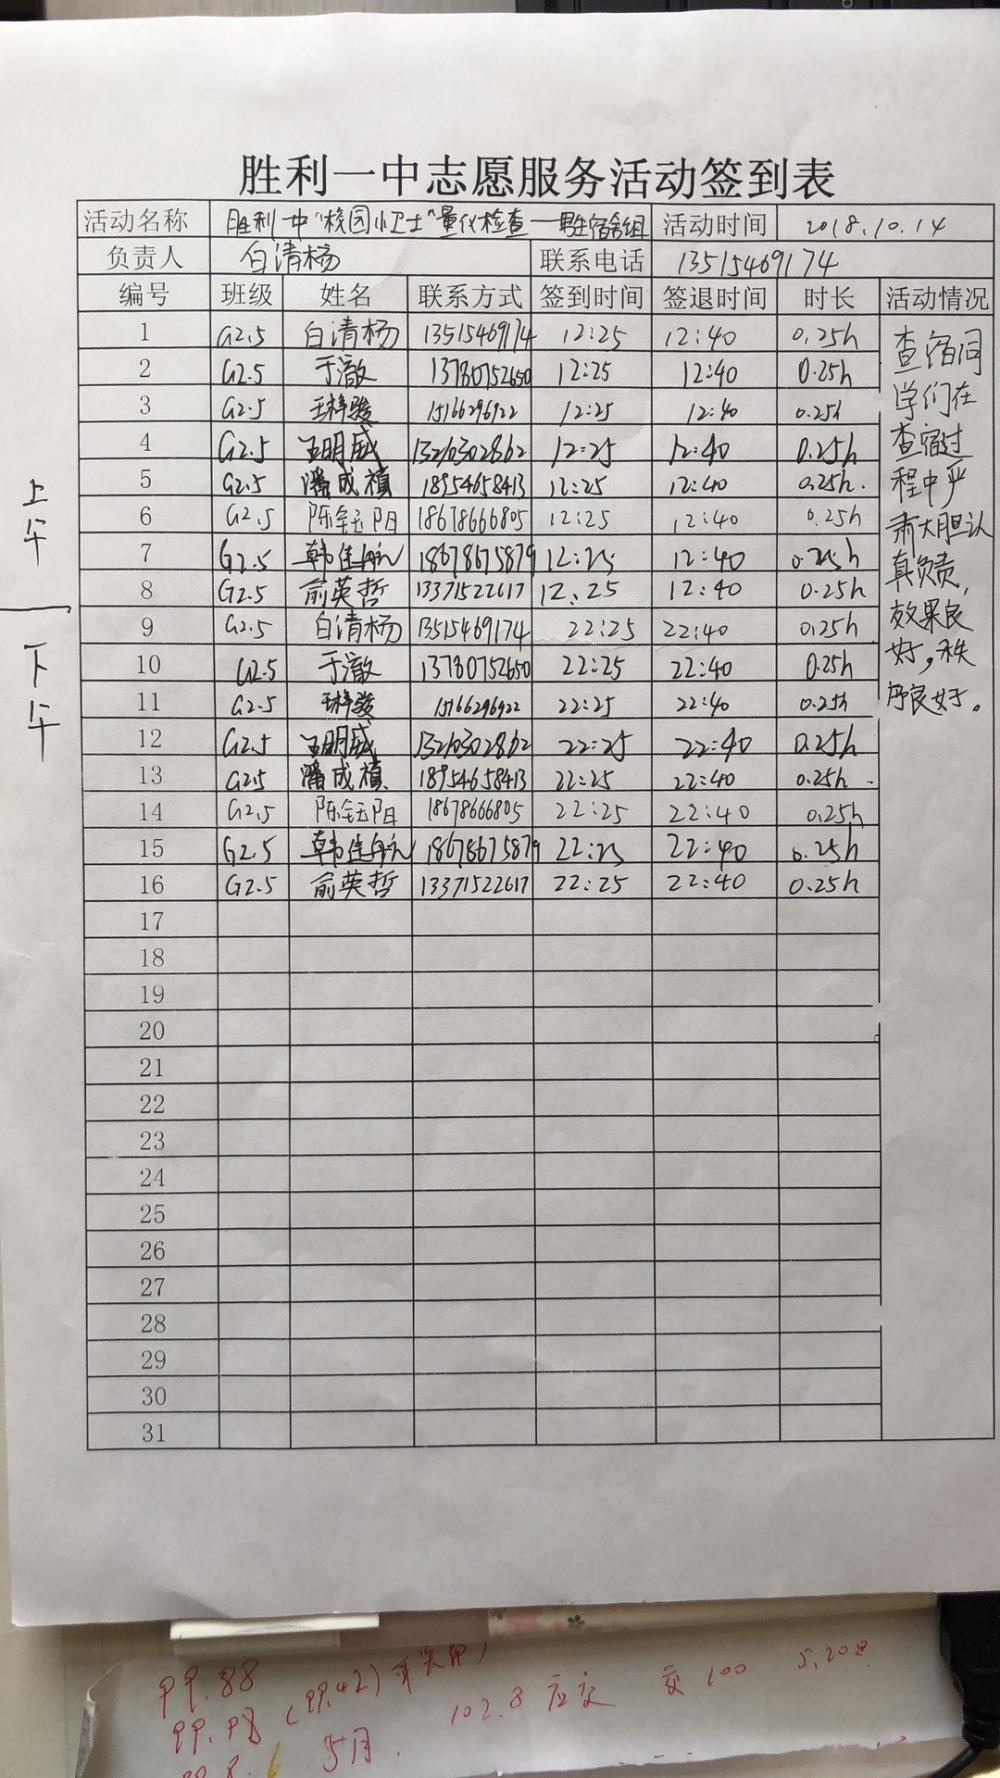 胜利一中志愿服务活动签到表
活动名称 胜利一中“校园小卫士”量化检查—男生宿舍组 活动时间 2018.10.14
负责人 白清杨 联系电话 13515469174
编号 班级 姓名 联系方式 签到时间 签退时间 时长 活动情况
1 G2.5 白清杨 13515469174 12:25 12:40 0.25h
2 G2.5 于澈 13780752650 12:25 12:40 0.25h
3 G2.5 15166296922 12:25 12:40 0.25h
4 G2.5 王明威 1326302862 12:25 12:40 0.25h
5 G2.5 潘成禛 18954658413 12:25 12:40 0.25h.
6 G2.5 陈钰阳 18678666805 12:25 12:40 0.25h
7 G2.5 韩佳航 18678675879 12:25 12:40 0.25h
8 G2.5 俞英哲 13371522617 12:25 12:40 0.25h
9 G2.5 白清杨 13515469174 22:25 22:40 0.25h
10 G2.5 于澈 13780752650 22:25 22:40 0.25h
11 G2.5 15166296922 22:25 22:40 0.25h
12 G2.5 王明威 22:25 22:40 0.25h
13 G2.5 潘成禛 18954658413 22:25 22:40 0.25h.
14 G2.5 陈钰阳 18678666805 22:25 22:40 0.25h
15 G2.5 韩佳航 18678675879 22:25 22:40 0.25h
16 G2.5 俞英哲 13371522617 22:25 22:40 0.25h
17
18
19
20
21
22
23
24
25
26
27
28
29
30
31
查宿同
学们在
查宿过
程中严
肃大胆认
真负责,
效果良
好,秩
序良好。
上午
下午
99.88
99.98 (99.42)
102.8 应交 交100 5.20
5月.